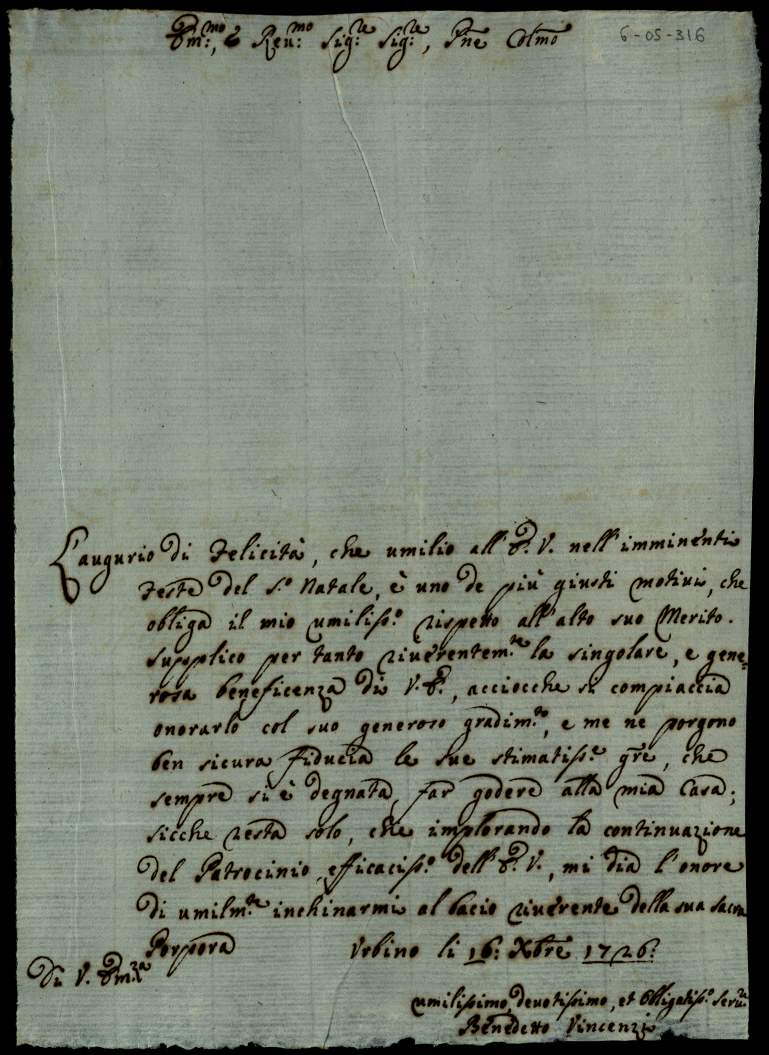 Em:mo, e Reu:mo Sig:re Sig:re, Pne Colmo
6-05-316
L'augurio di Felicità, che umilio all'E. V. nell'imminenti
Feste del S.o Natale, è uno de più giusti motivi, che
obliga il mio umiliss.o rispetto all'alto suo Merito.
Supplico per tanto riuerentem.te la singolare, e gene=
rosa beneficenza di V. E., acciocche si compiaccia
onorarlo col suo generoso gradim.to, e me ne porgono
ben sicura fiducia le sue stimatiss.e grē, che
sempre si è degnata far godere alla mia Casa;
sicche resta solo, che implorando la continuazione
del Patrocinio efficaciss.o dell'E. V., mi dia l'onore
di umilm.te inchinarmi al bacio riuerente della sua sacra
Porpora Vrbino li 16: Xbre 1726:
Di V. Em:za
umilissimo, deuotissimo, et Obligatiss.o Seru.re
Benedetto Vincenzi